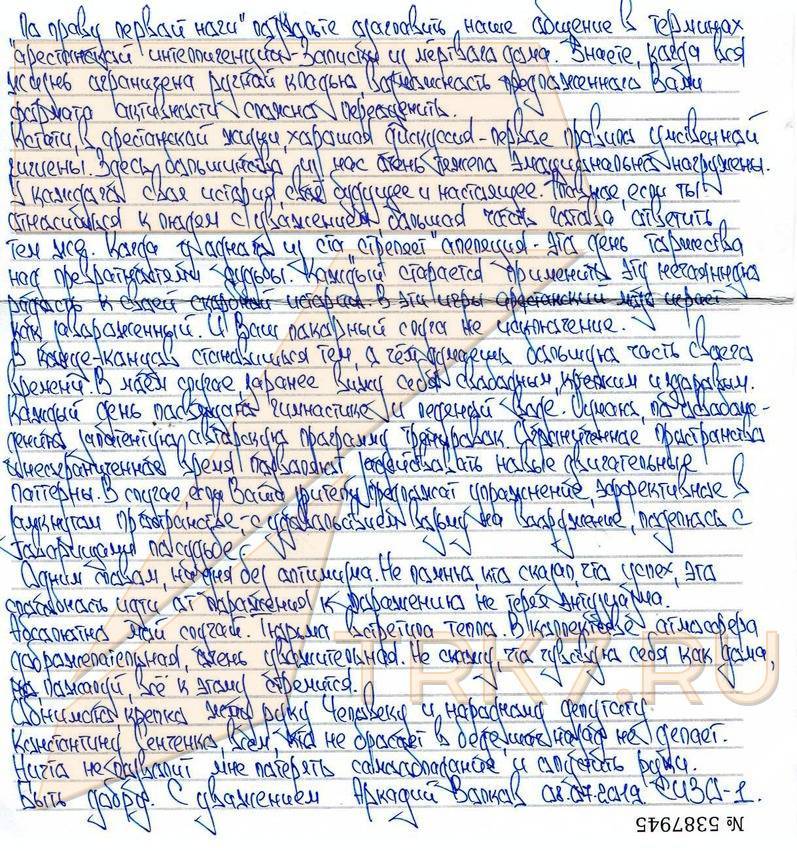 "По праву первой ночи" позвольте озаглавить наше общение в терминах
арестантской интеллигенции - Записки из мёртвого дома. Знаете, когда вся
жизнь ограничена ручной кладью, возможность предложенного Вами
формата активности сложно переоценить.
Кстати, в арестантской жизни, хорошая дискуссия - первое правило умственной
гигиены. Здесь большинство из нас очень тяжело эмоционально нагружены.
У каждого своя история, своё будущее и настоящее. Главное, если ты
относишься к людям с уважением большая часть готова ответить
тем же. Когда у одного из ста стреляет "апелляция - это день торжества
над превратностями судьбы. Каждый старается применить эту нечаянную
радость к своей скорбной истории. В эти игры арестантский играет
как завороженный. И Ваш покорный слуга не исключение.
В конце-концов становишься тем, о чём думаешь большую часть своего
времени. В моём случае заранее вижу себя свободным, крепким и здоровым.
Каждый день посвящаю гимнастике и ледяной воде. Думаю, по освобож-
дению запатентую авторскую программу тренировок. Ограниченное пространство
и неограниченное время позволяют задействовать новые двигательные
паттерны. В случае, если Ваши зрители предложат упражнение, эффективное в
замкнутом пространстве - с удовольствием возьму на вооружение, поделюсь с
товарищами по судьбе.
Одним словом, ни дня без оптимизма. Не помню кто сказал, что успех, это
способность идти от поражения к поражению не теряя энтузиазма.
Абсолютно мой случай. Тюрьма встретила тепло. В коллективе атмосфера
доброжелательная, очень уважительная. Не скажу, что чувствую себя как дома,
но пожалуй, всё к этому стремится.
Обнимаю, крепко жму руку Человеку и народному депутату
Константину Сенченко, всем, кто не бросает в беде
Ничто не позволит мне потерять самообладание и опустить руки.
Быть добру. С уважением Аркадий Волков 08.07.2019 СИЗО-1.
№ 5387945
TRK7.RU